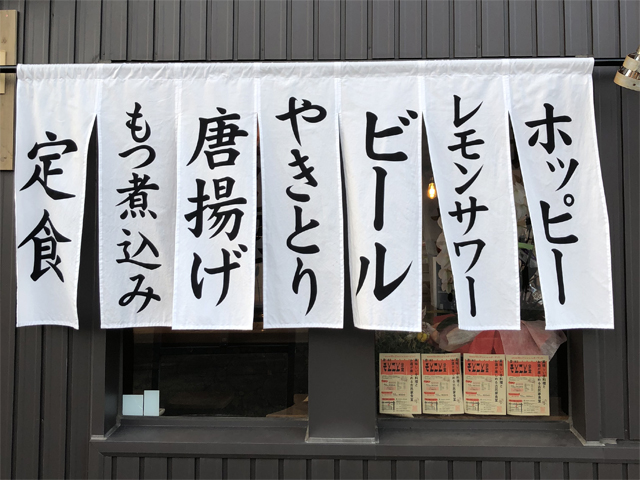 ホッピー
レモンサワー
ビール
やきとり
唐揚げ
もつ煮込み
定食